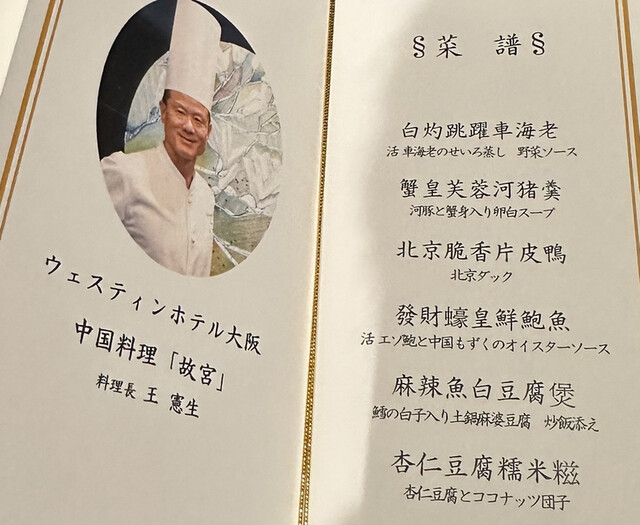 ウェスティンホテル大阪
中国料理「故宮」
料理長 王 憲生
§菜 譜§
白灼跳躍車海老
活車海老のせいろ蒸し 野菜ソース
蟹皇芙蓉河猪羹
河豚と蟹身入り卵白スープ
北京脆香片皮鴨
北京ダック
發財蠔皇鮮鮑魚
活エゾ鮑と中国もずくのオイスターソース
麻辣魚白豆腐煲
鱈の白子入り土鍋麻婆豆腐 炒飯添え
杏仁豆腐糯米糍
杏仁豆腐とココナッツ団子